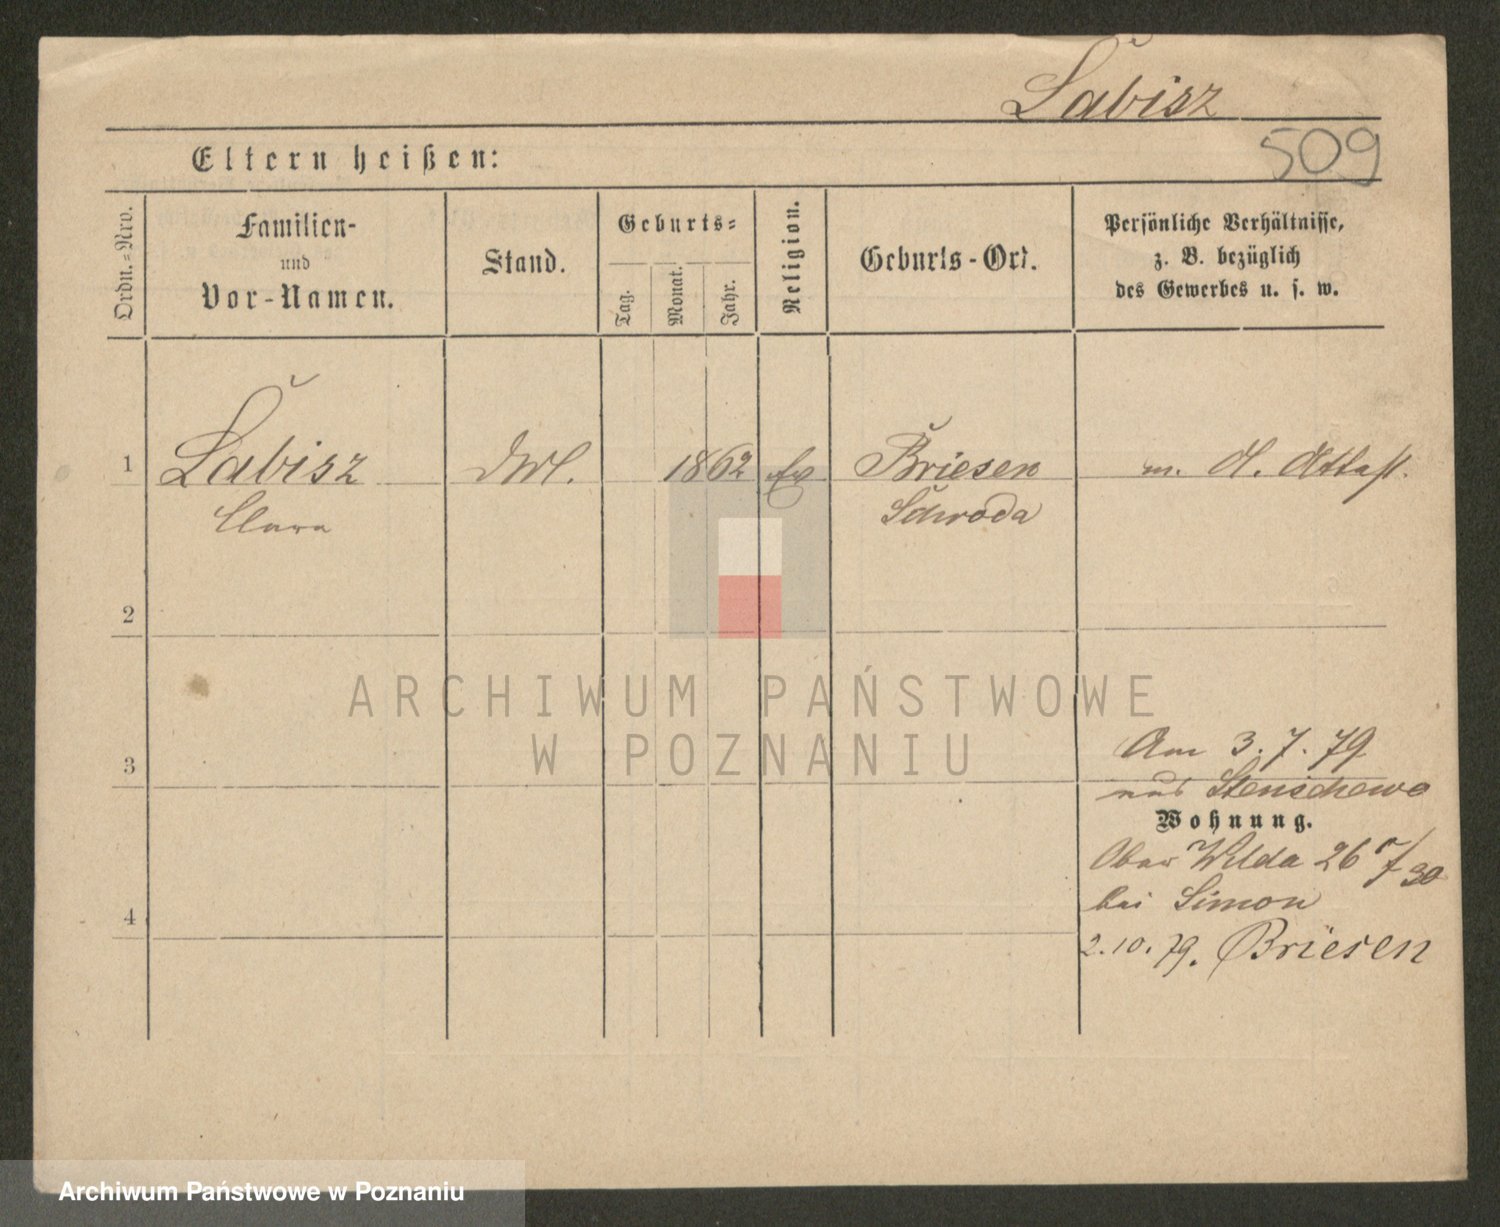 Labisz
509
Eltern heißen:
Ordn.=Nro.
Familien-
und
Vor-Namen.
Stand.
Geburts=
Tag.
Monat.
Jahr.
Religion.
Geburts-Ort.
Persönliche Verhältnisse,
z. B. bezüglich
des Gewerbes u. s. w.
1 Labisz 1862 Briesen m. A. Attest.
Clara Schroda
2
ARCHIWUM PAŃSTWOWE
W POZNANIU
Am 3.7.79
3
nach Stenschewo
Wohnung.
Ober Wilda 26
bei Simon
4
2.10.79. Briesen
Archiwum Państwowe w Poznaniu